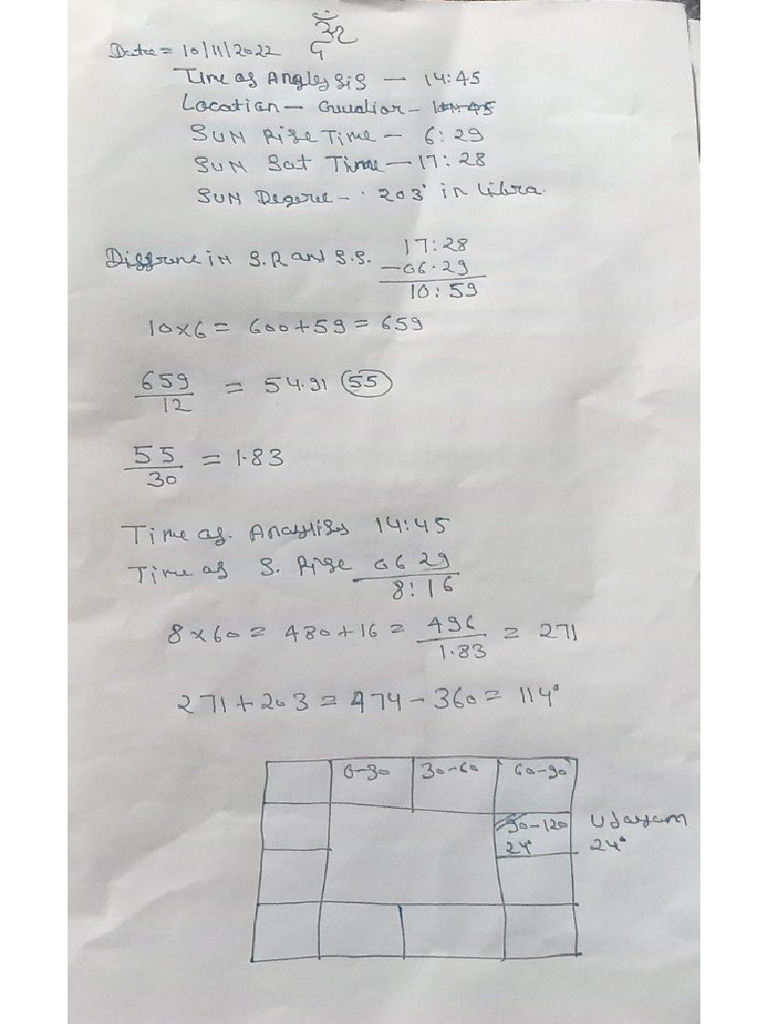 ॐ
Date = 10/11/2022
Time of Anglysis - 14:45
Location - Gwalior -
SUN Rise Time - 6:29
SUN Sat Time - 17:28
SUN Degree - 203° in Libra.
Diffrance in S.R and S.S. 17:28
-06.29
10:59
10x6 = 600+59 = 659
659/12 = 54.91 (55)
55/30 = 1.83
Time of. Anaylises 14:45
Time of S. Rise 06 29
8:16
8x60 = 480+16 = 496/1.83 = 271
271+203 = 474-360 = 114°
0-30 30-60 60-90
90-120 Udayam
24° 24°